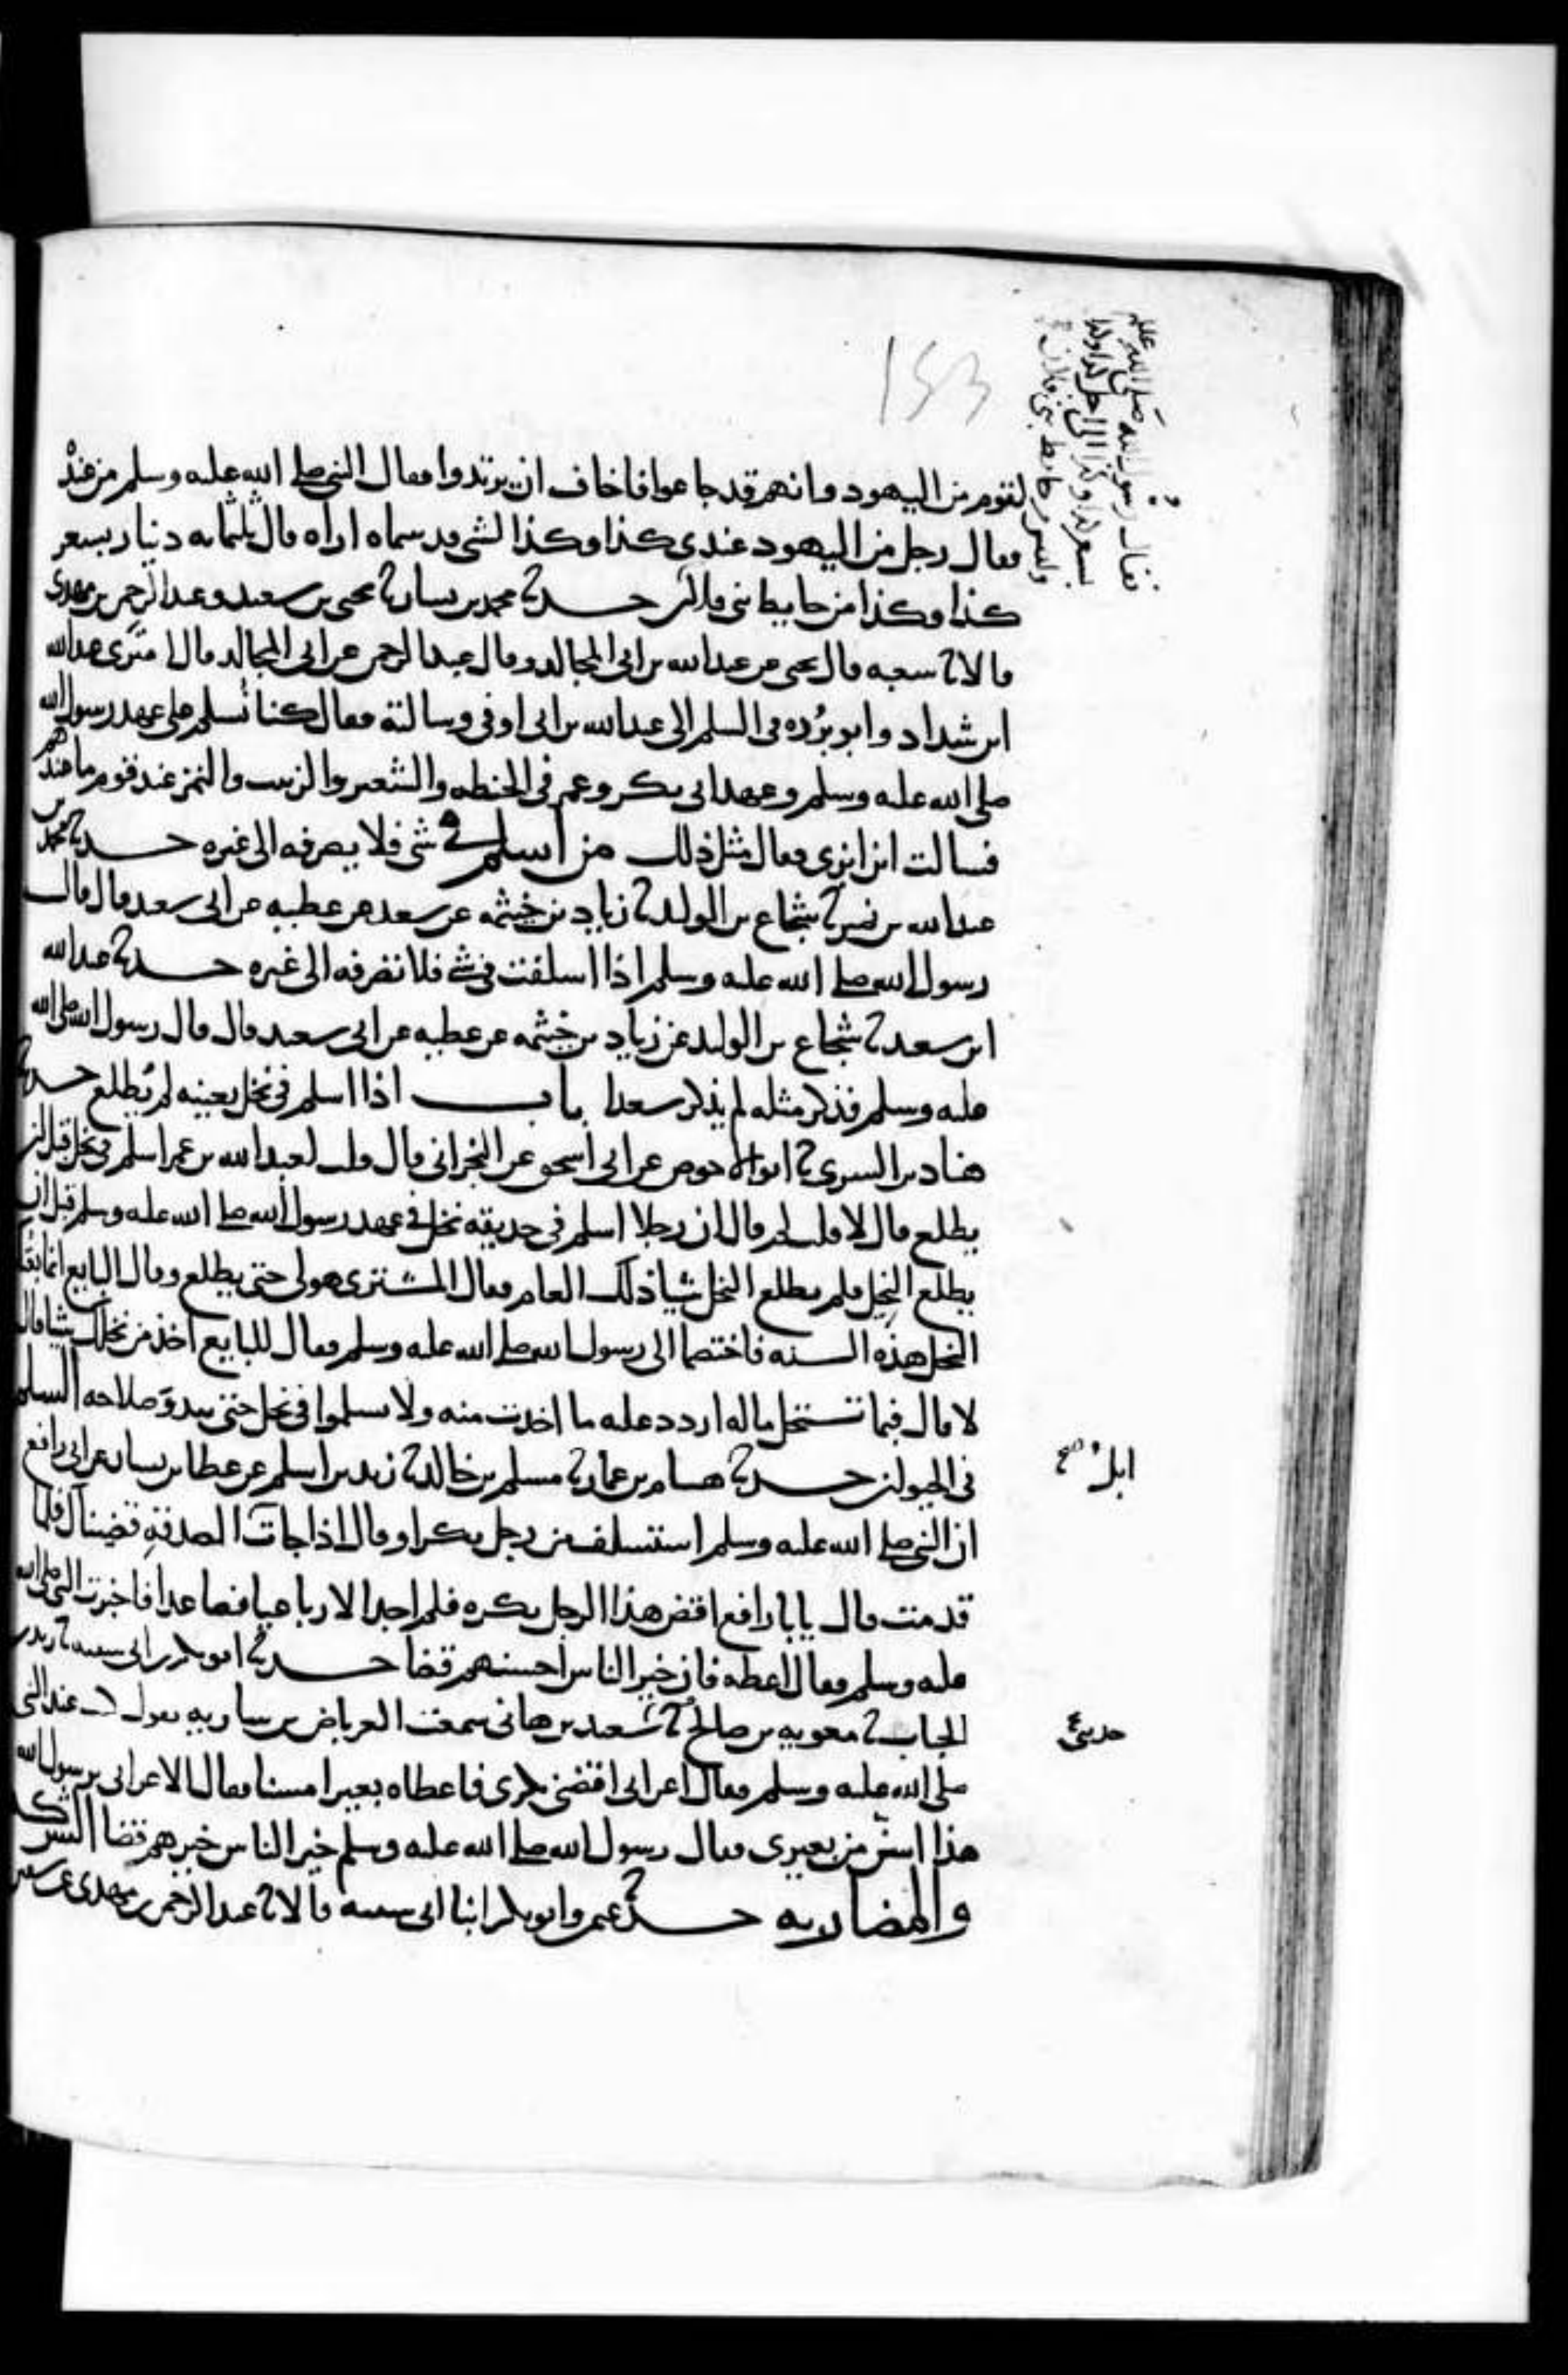 لقوم من اليهود وانهم قد جاعوا فاخاف ان يرتدوا فقال النبي صلى الله عليه وسلم من عنده
فقال رجل من اليهود عندي كذا وكذا لشي قد سماه اراه قال ثلثمايه دينار بسعر
كذا وكذا من حايط بني فلان حدثنا محمد بن بسار ثنا يحيى بن سعيد وعبد الرحمن بن مهدي
قالا ثنا شعبه قال يحيى عن عبد الله بن ابي المجالد وقال عبد الرحمن عن ابي المجالد قال امترى عبد الله
ابن شداد وابو برده في السلم الى عبد الله بن ابي اوفى وسالته فقال كنا نسلم على عهد رسول الله
صلى الله عليه وسلم وعهد ابي بكر وعمر في الحنطه والشعير والزبيب والتمر عند قوم ما عندهم
فسالت ابن ابزى فقال مثل ذلك من اسلم في شي فلا يصرفه الى غيره حدثنا محمد بن
عبد الله بن نمير ثنا شجاع بن الوليد ثنا زياد بن خيثمه عن سعد عن عطيه عن ابي سعيد قال قال
رسول الله صلى الله عليه وسلم اذا اسلفت في شي فلا تصرفه الى غيره حدثنا عبد الله
ابن سعيد ثنا شجاع بن الوليد عن زياد بن خيثمه عن عطيه عن ابي سعيد قال قال رسول الله صلى الله
عليه وسلم فذكر مثله لم يذكر سعدا باب اذا اسلم في نخل بعينه لم يُطلع حدثنا
هناد بن السري ثنا ابو الاحوص عن ابي اسحق عن النجراني قال قلت لعبد الله بن عمر اسلم في نخل قبل ان
يطلع قال لا قلت لم قال ان رجلا اسلم في حديقه نخل في عهد رسول الله صلى الله عليه وسلم قبل ان
يطلع النخل فلم يطلع النخل شيا ذلك العام فقال المشتري هو لي حتى يطلع وقال البايع انما بعتك
النخل هذه السنه فاختصما الى رسول الله صلى الله عليه وسلم فقال للبايع اخذ من نخلك شيا قال
لا قال فبما تستحل ماله اردد عليه ما اخذت منه ولا تسلموا في نخل حتى يبدو صلاحه السلم
في الحيوان حدثنا هسام بن عمار ثنا مسلم بن خالد ثنا زيد بن اسلم عن عطا بن يسار عن ابي رافع
ان النبي صلى الله عليه وسلم استسلف من رجل بكرا وقال اذا جات ال الصدقة قضيناك فلما
قدمت قال يابا رافع اقض هذا الرجل بكره فلم اجد الا رباعيا فصاعدا فاخبرت النبي صلى الله
عليه وسلم فقال اعطه فان خير الناس احسنهم قضا حدثنا ابو بكر بن ابي شيبه ثنا زيد بن
الحباب ثنا معويه بن صالح ثنا سعيد بن هاني سمعت العرباض بن ساريه يقول كنت عند النبي
صلى الله عليه وسلم فقال اعرابي اقضني بكري فاعطاه بعيرا مسنا فقال الاعرابي يرسول الله
هذا اسن من بعيري فقال رسول الله صلى الله عليه وسلم خير الناس خيرهم قضا الشركه
والمضاربه حدثنا عثمن وابو بكر ابنا ابي شيبه قالا ثنا عبد الرحمن بن مهدي عن سفين
فقال رسول الله صلى الله عليه
بسعر كذا وكذا الى اجل كذا وكذا
وليس من حايط بني فلان
ابل صح
حدثني